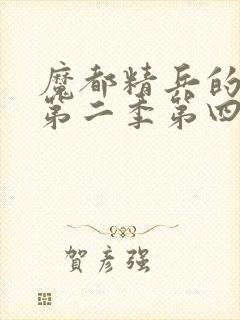 魔都精兵的
第二季第四
賀彥强